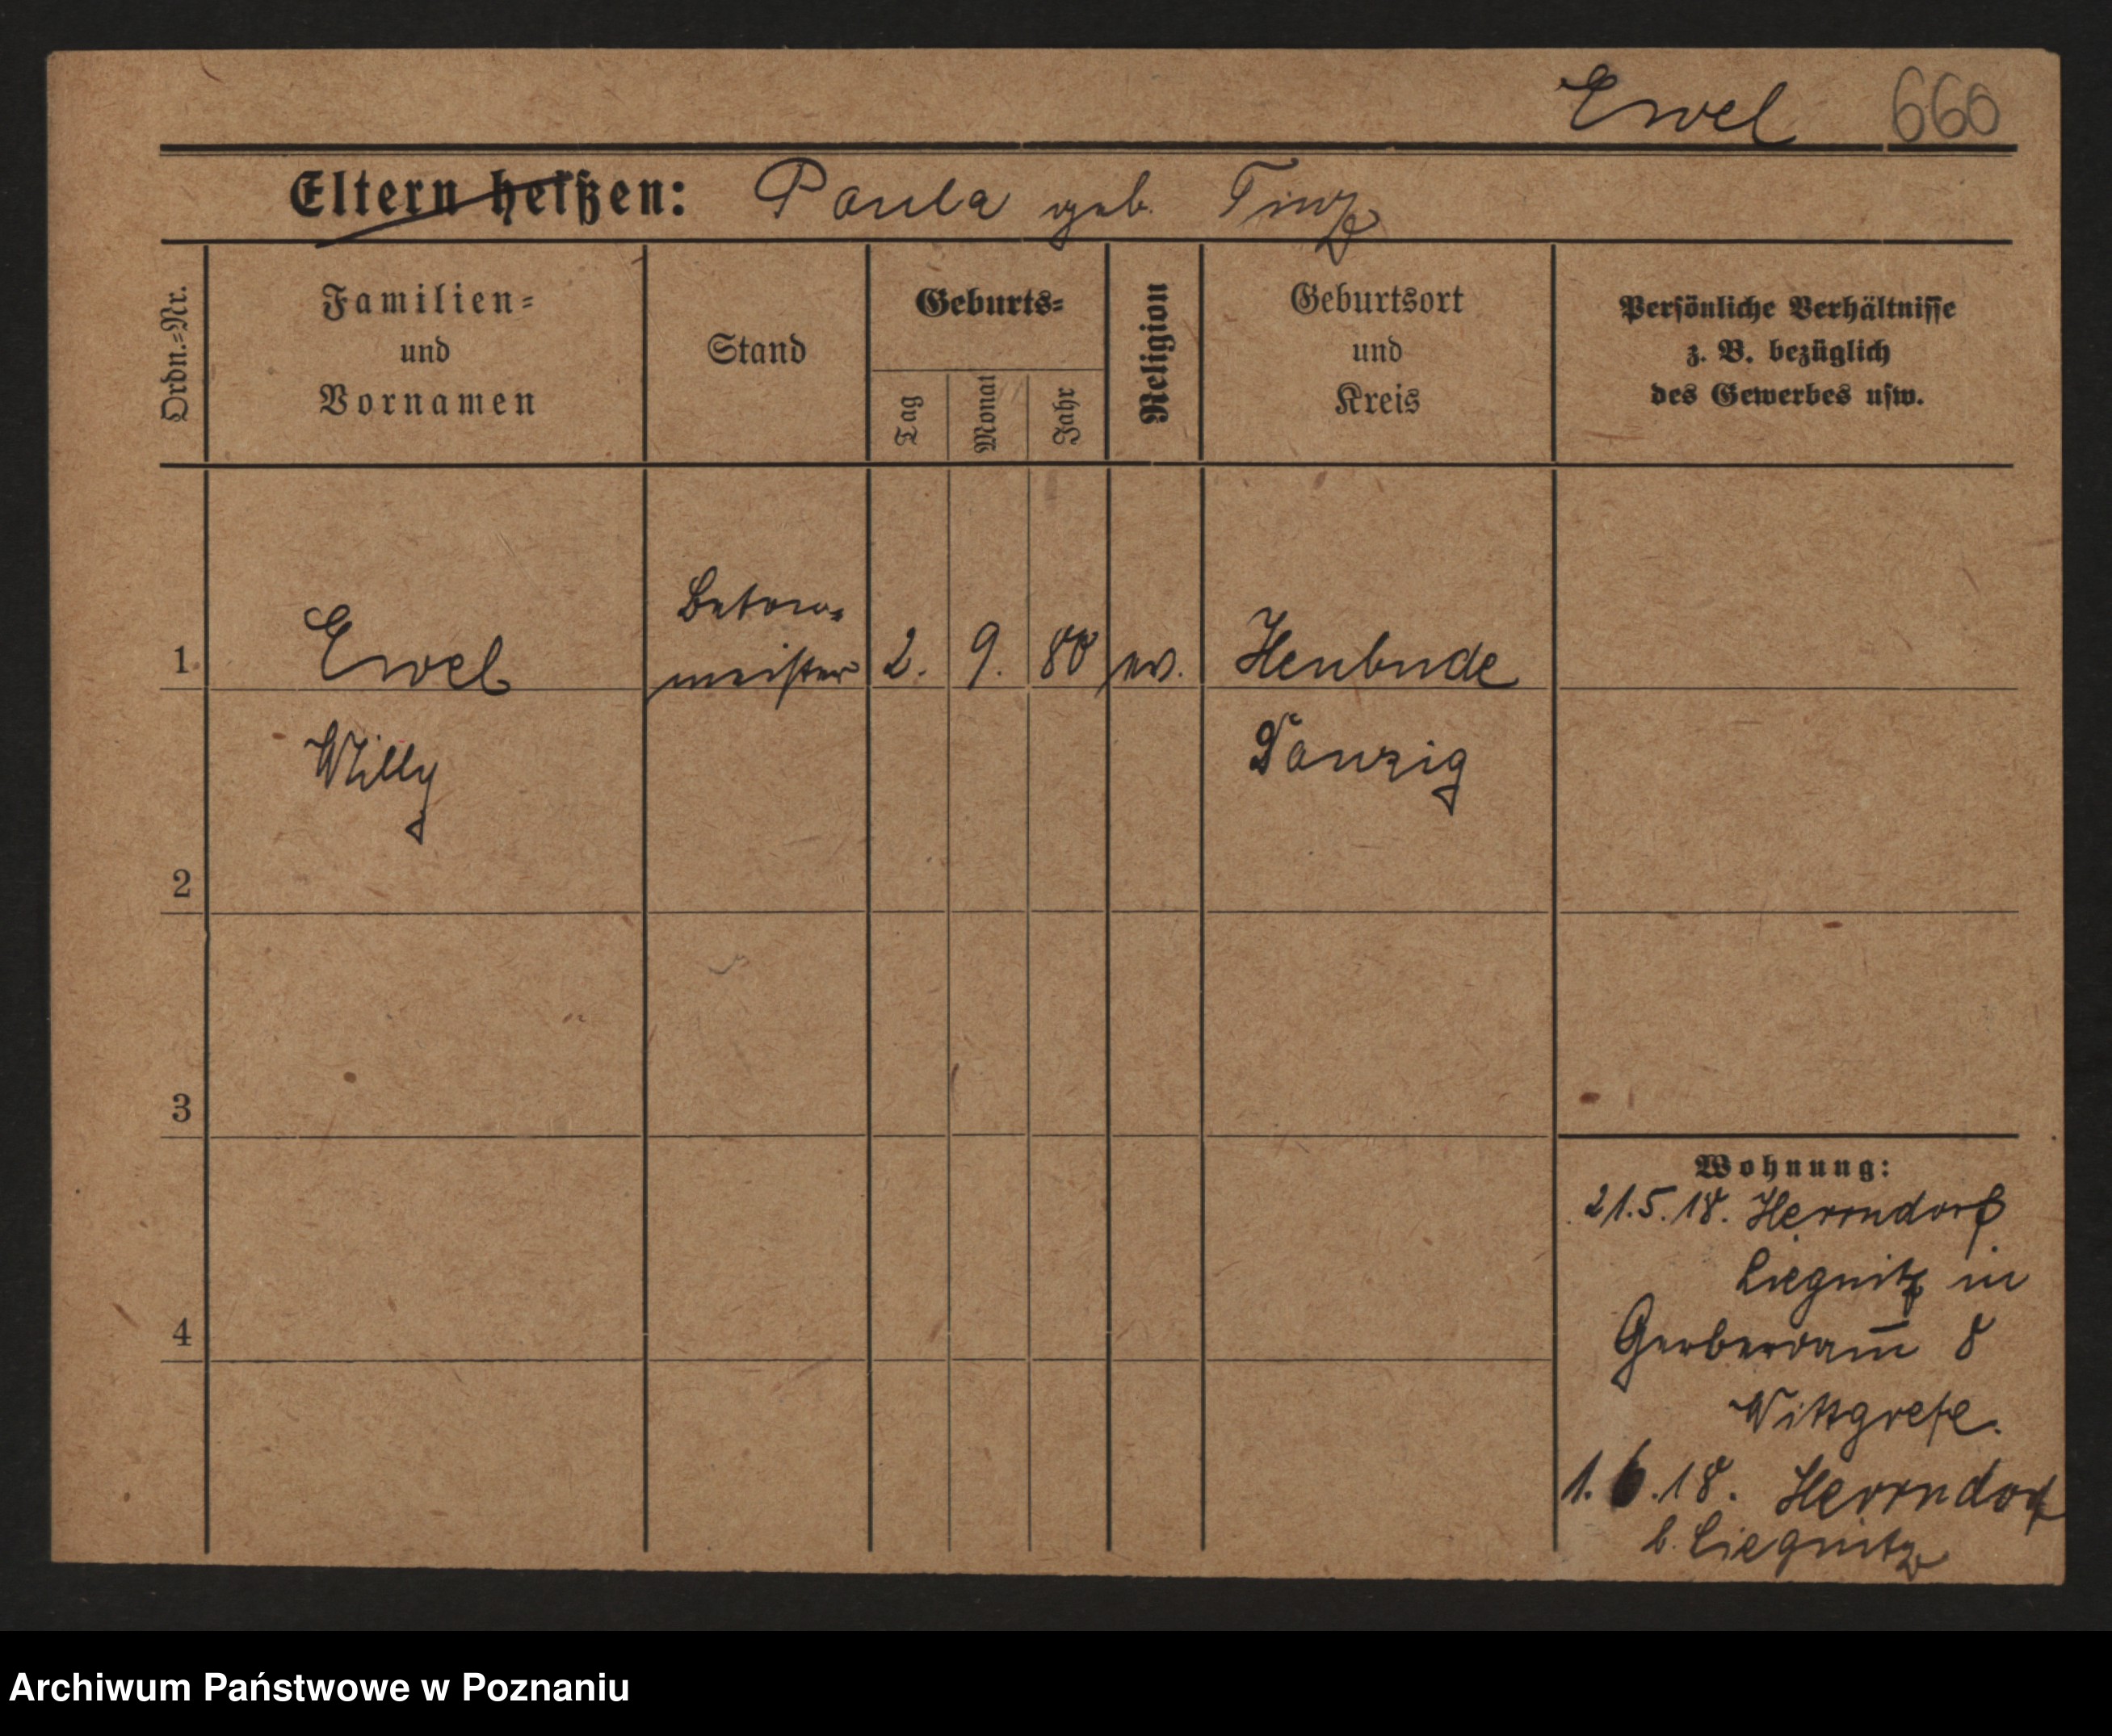 Ewel 660
Eltern heißen: Paula geb. Tinz
Ordn.-Nr.
Familien-
und
Vornamen
Stand
Geburts-
Tag
Monat
Jahr
Religion
Geburtsort
und
Kreis
Persönliche Verhältnisse
z. B. bezüglich
des Gewerbes usw.
Beton-
1 Ewel meister 2. 9. 80 ev. Heubude
Willy Danzig
2
3
4
Wohnung:
21.5.18. Herrndorf
Liegnitz in
Gerberdam̅ 8
1.6.18. Herrndorf
b. Liegnitz
Archiwum Państwowe w Poznaniu